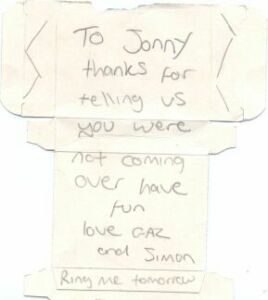 To Jonny
thanks for
telling us
you were
not coming
over have
fun
love GAZ
and Simon
Ring me tomorrow